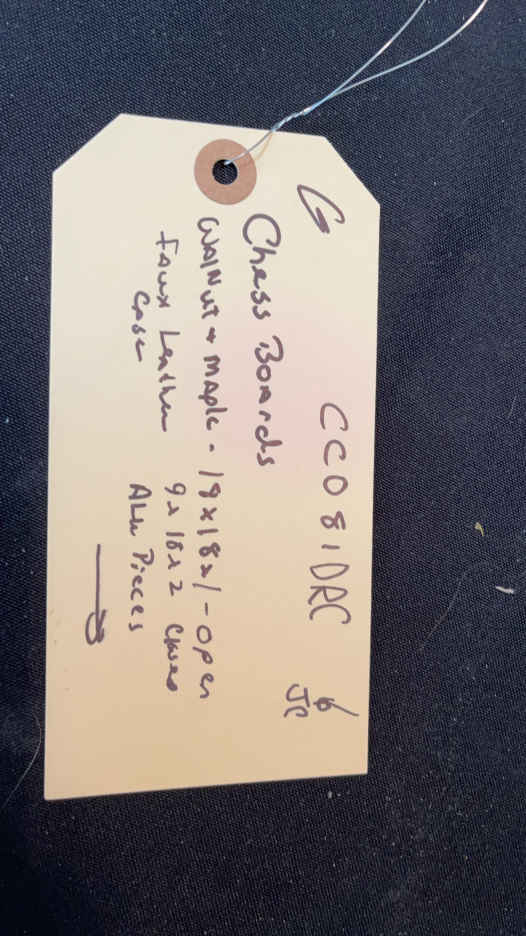 G
CC081DRC
JC
Chess Boards
Walnut + maple - 18x18x1 - open
Faux Leather 9x18x2 Closed
Case
All Pieces